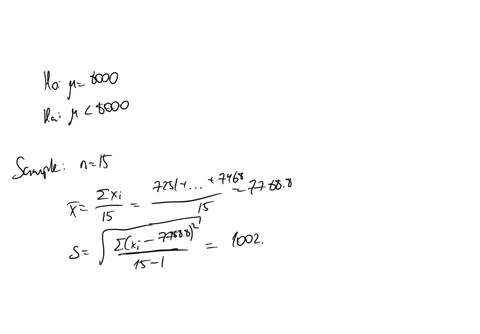 H₀: μ = 8000
Hₐ: μ < 8000
Sample: n=15
x̄ = Σxᵢ / 15 = (7251+...+7468) / 15 = 7768.8
S = √(Σ(xᵢ − 7768.8)² / (15−1)) = 1002.